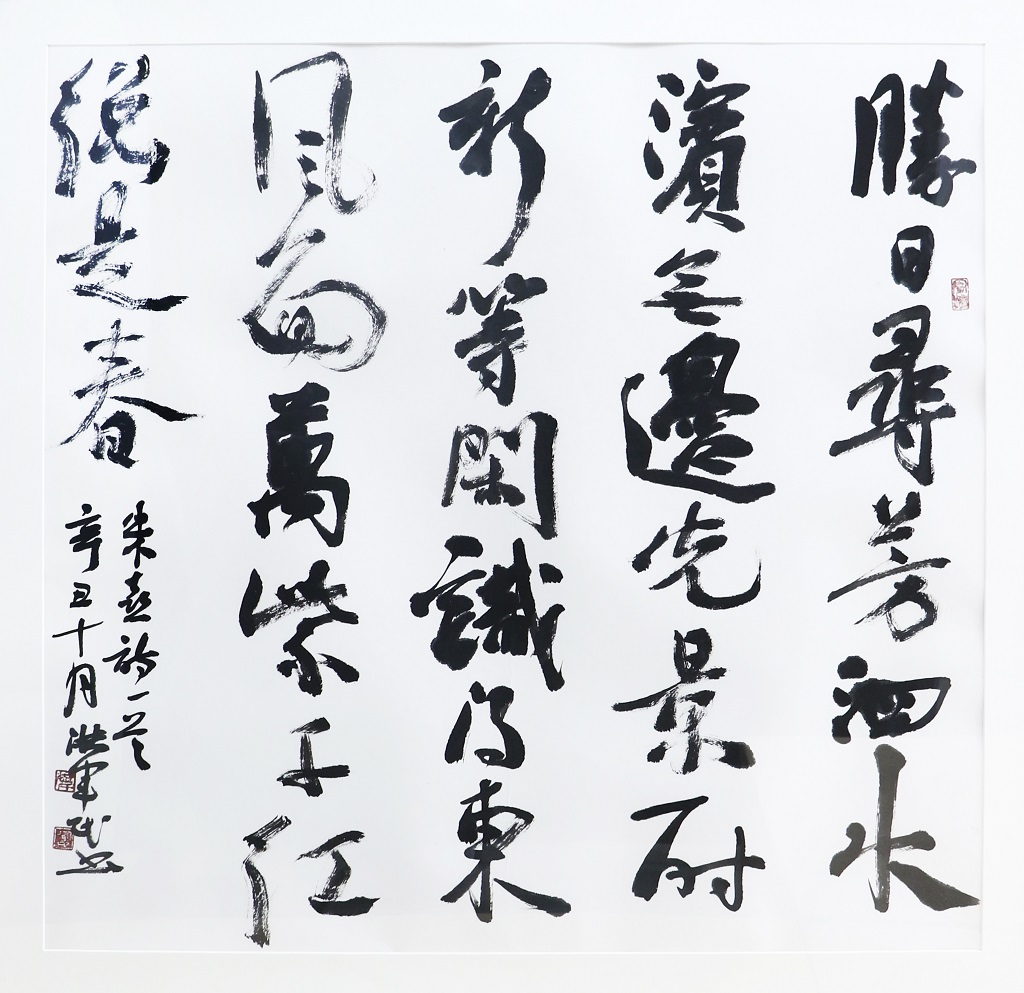 勝日尋芳泗水
濱无邊光景一时
新等閑識得東
風面萬紫千紅
總是春
朱熹詩一首
辛丑十月洪軍